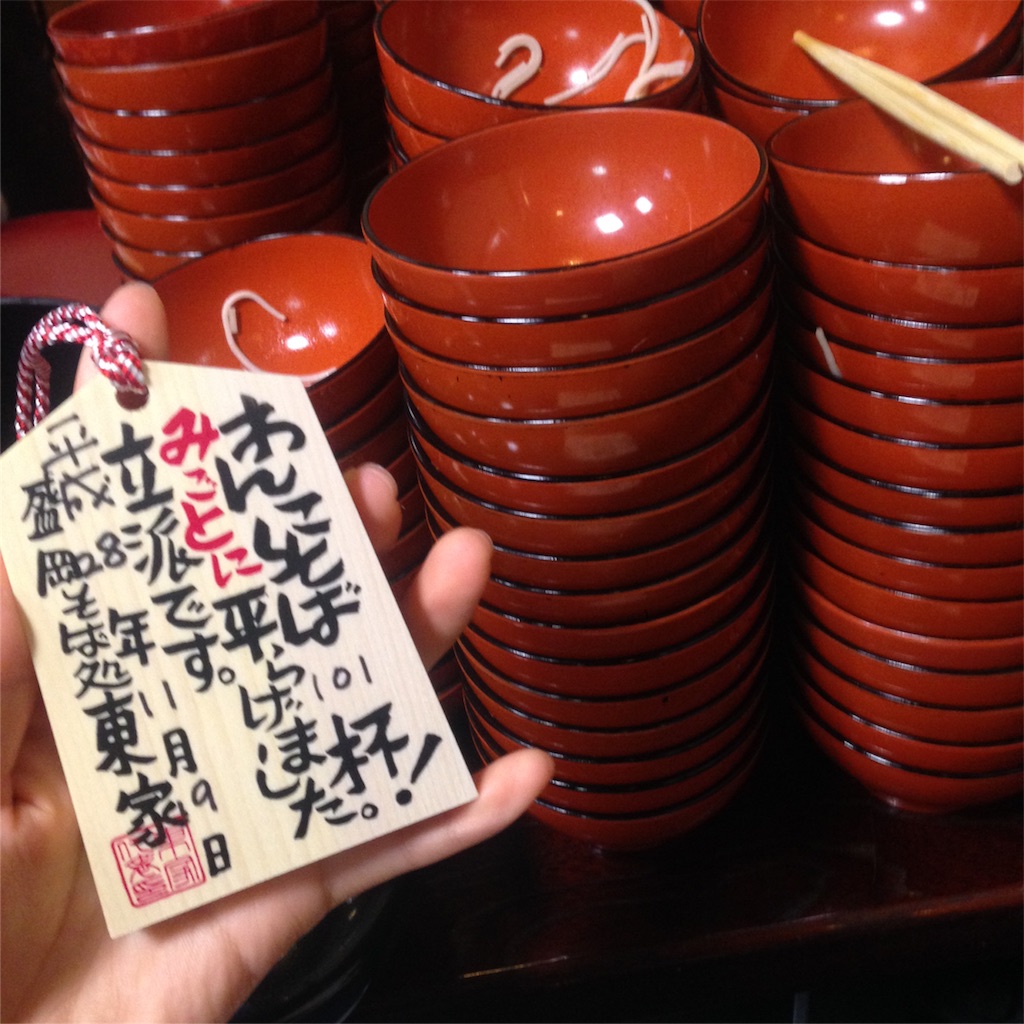 わんこそば101杯!
みごとに平らげました。
立派です。
平成28年11月9日
盛岡そば処東家